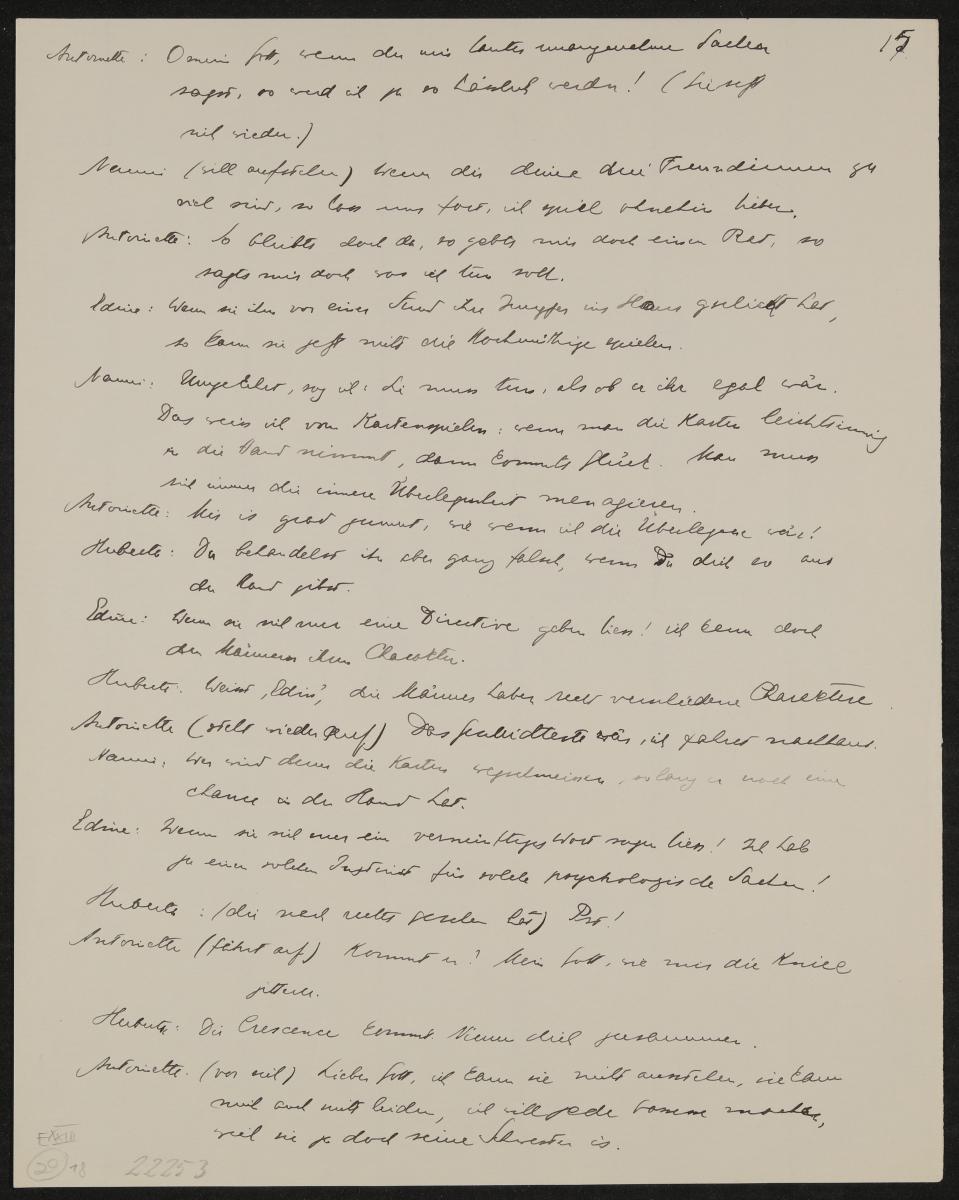 15
Antoinette: O mein Gott, wenn du mir lauter unangenehme Sachen
sagst, so werd ich ja so hässlich werden! (Sie setzt
sich wieder.)
Nanni (will aufstehen) Wenn dir deine drei Freundinnen zu
viel sind, so lass uns fort, ich spiel ohnehin lieber.
Antoinette: So bleibts doch da, so gebts mir doch einen Rat, so
sagts mir doch was ich tun soll.
Edine: Wenn sie ihm vor einer Stund ihre Jungfer ins Haus geschickt hat,
so kann sie jetzt nicht die Hochmüthige spielen.
Nanni: Umgekehrt, sag ich: Sie muss tun, als ob er ihr egal wär.
Das weiss ich vom Kartenspielen: wenn man die Karten leichtsinnig
in die Hand nimmt, dann kommts Glück. Man muss
sich immer die innere Überlegenheit menagieren.
Antoinette: Mir is grad zumut, wie wenn ich die Überlegene wär!
Huberta: Du behandelst ihn aber ganz falsch, wenn Du dich so aus
der Hand gibst.
Edine: Wenn sie sich nur eine Directive geben liess! ich kenn doch
den Männern ihren Charakter.
Huberta: Weisst, Edin', die Männer haben recht verschiedene Charaktere.
Antoinette (steht wieder auf) Das Gescheidteste wär, ich fahret nachhaus.
Nanni: Wer wird denn die Karten wegschmeissen, solang er noch eine
chance in der Hand hat.
Edine: Wenn sie sich nur ein vernünftiges Wort sagen liess! Ich hab
ja einen solchen Instinct für solche psychologische Sachen!
Huberta: (die nach rechts gesehen hat) Pst!
Antoinette (fährt auf) Kommt er? Mein Gott, wie mir die Kniee
zittern.
Huberta: Die Crescence kommt. Nimm dich zusammen.
Antoinette: (vor sich) Lieber Gott, ich kann sie nicht ausstehen, sie kann
mich auch nicht leiden, ich will jede machen,
weil sie ja doch seine Schwester is.
EXXIII
20 18
22253